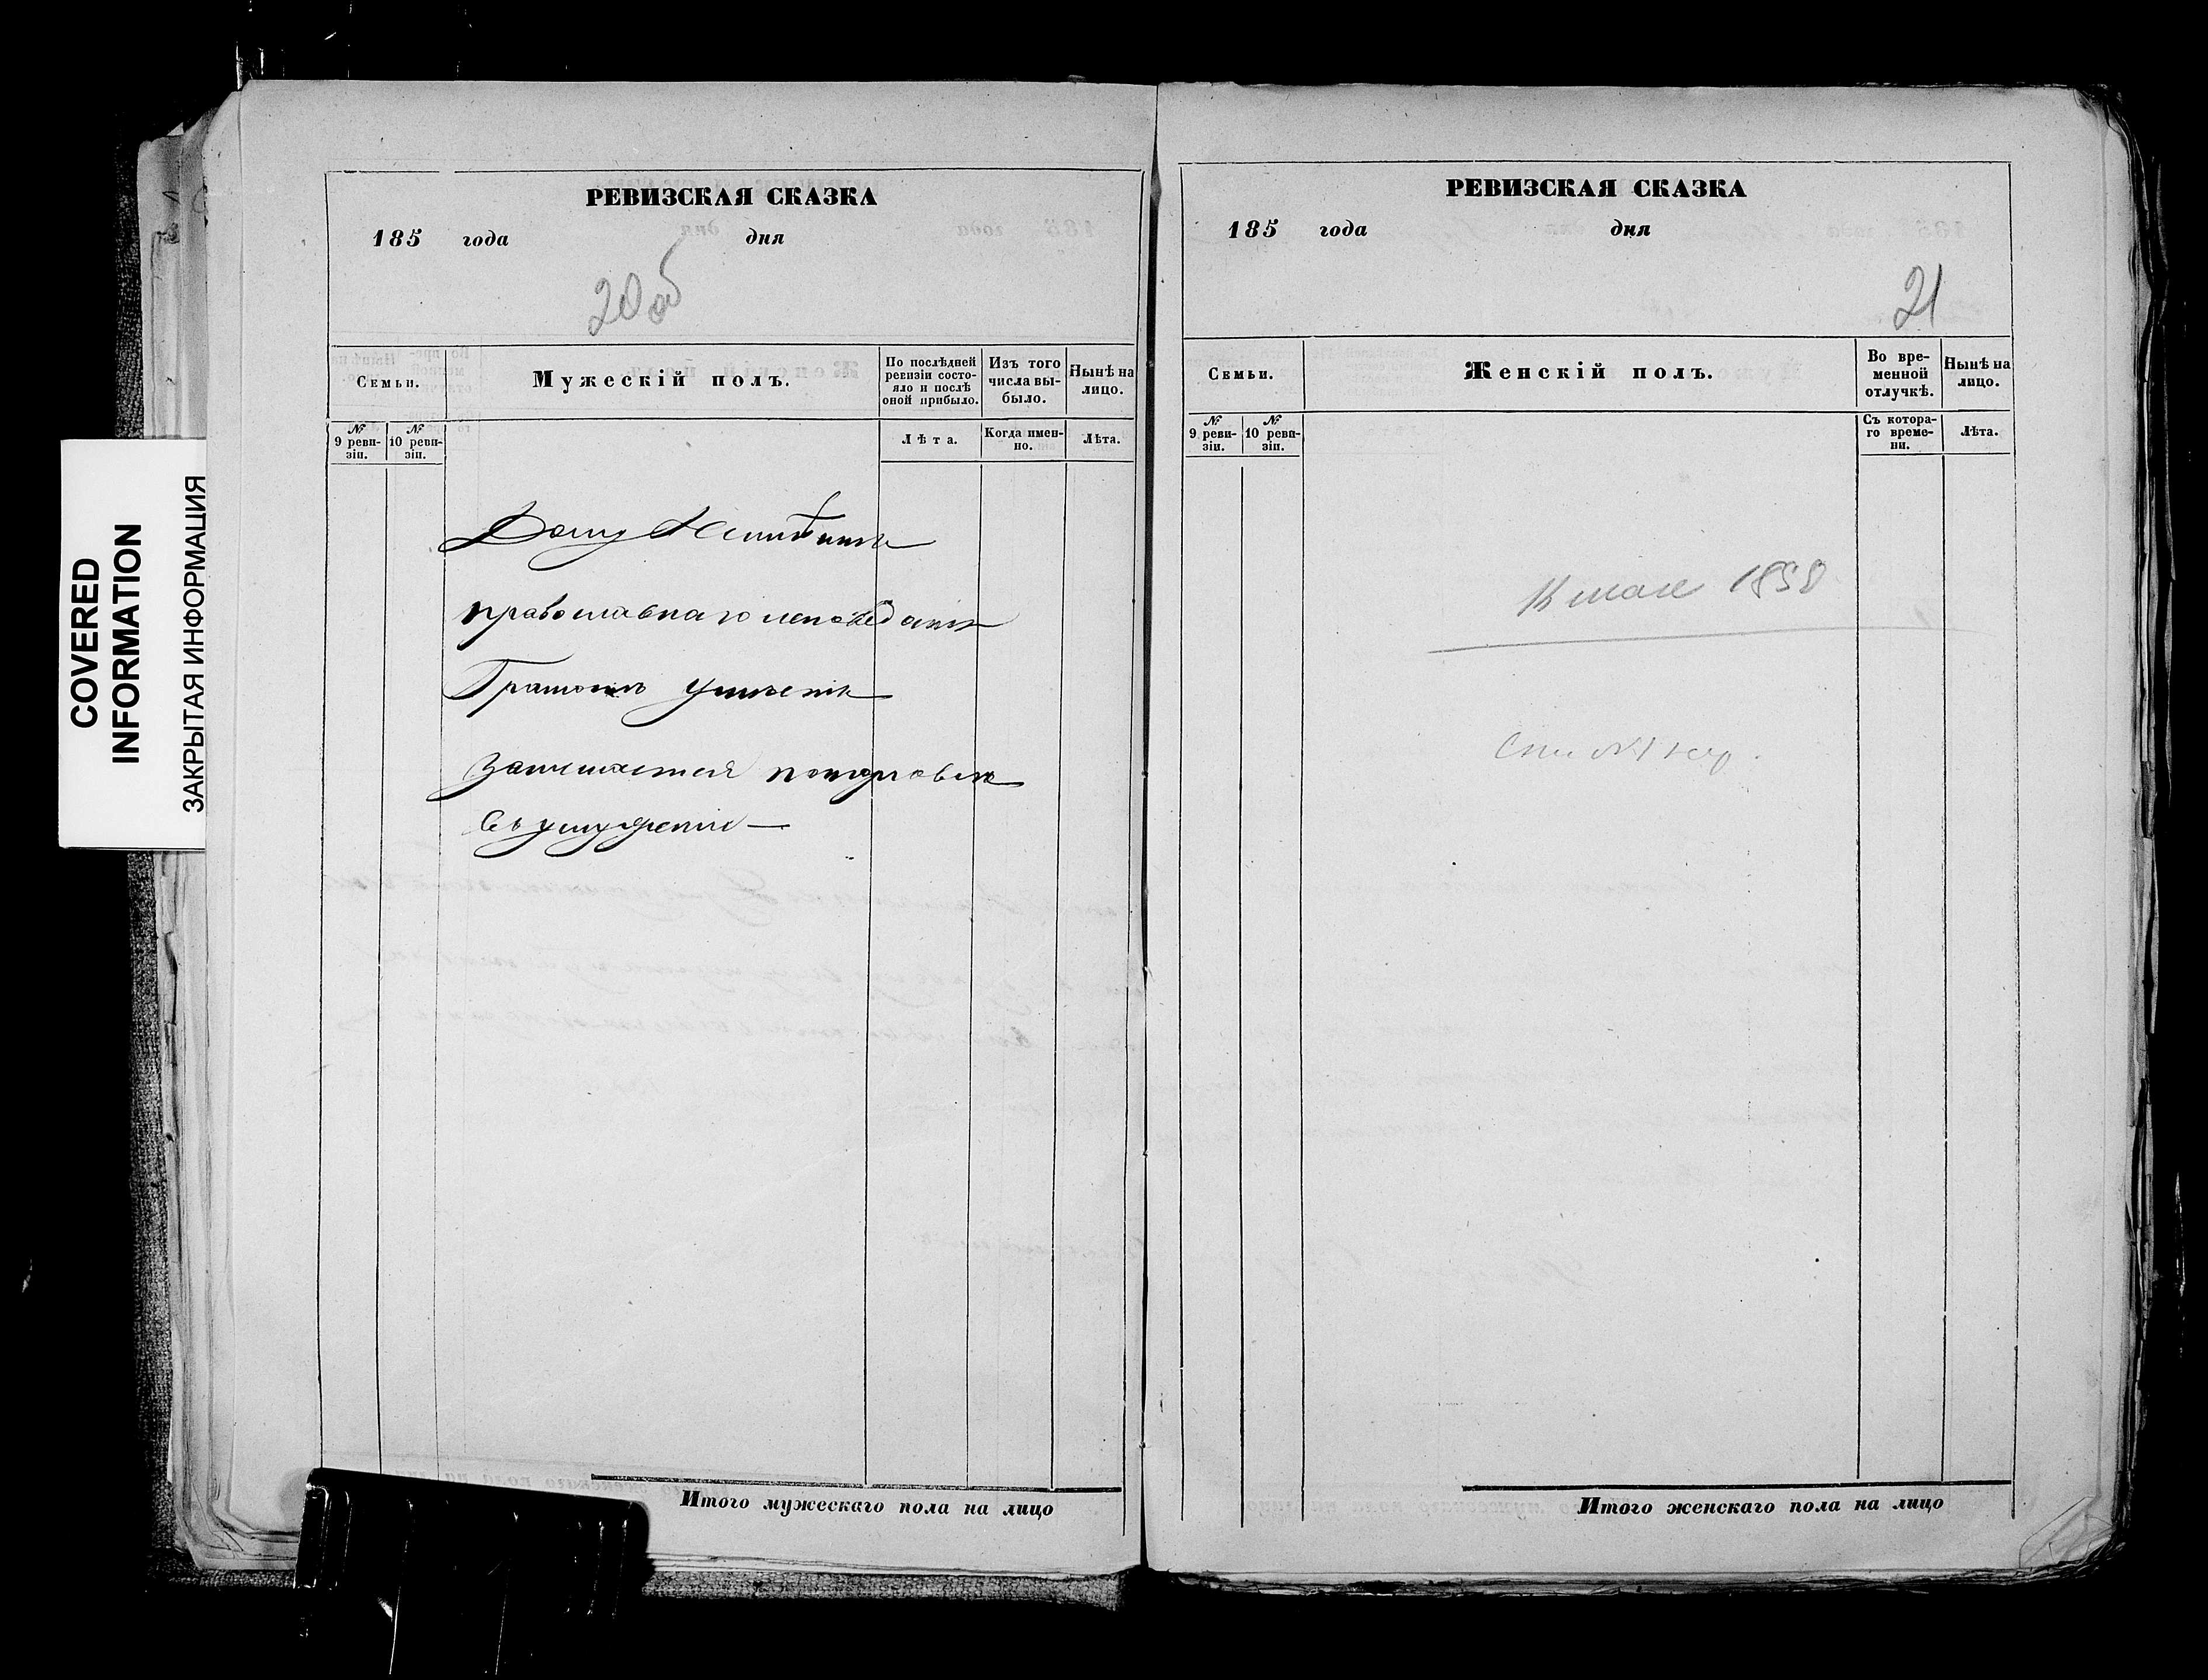 COVERED
INFORMATION
ЗАКРЫТАЯ ИНФОРМАЦИЯ
РЕВИЗСКАЯ СКАЗКА
185 года дня
20об
Семьи.
Мужескій полъ.
По послѣдней ревизіи состо-
яло и послѣ
оной прибыло.
Изъ того
числа вы-
было.
Нынѣ на
лицо.
№
9 реви-
зіи.
№
10 реви-
зіи.
Лѣта.
Когда имен-
но.
Лѣта.
Дому
православнаго исповѣданія
Грамотѣ умѣетъ
занимается
Итого мужескаго пола на лицо
РЕВИЗСКАЯ СКАЗКА
185 года дня
21
Семьи.
Женскій полъ.
Во вре-
менной
отлучкѣ.
Нынѣ на
лицо.
№
9 реви-
зіи.
№
10 реви-
зіи.
Съ котора-
го време-
ни.
Лѣта.
мая 1858
Итого женскаго пола на лицо